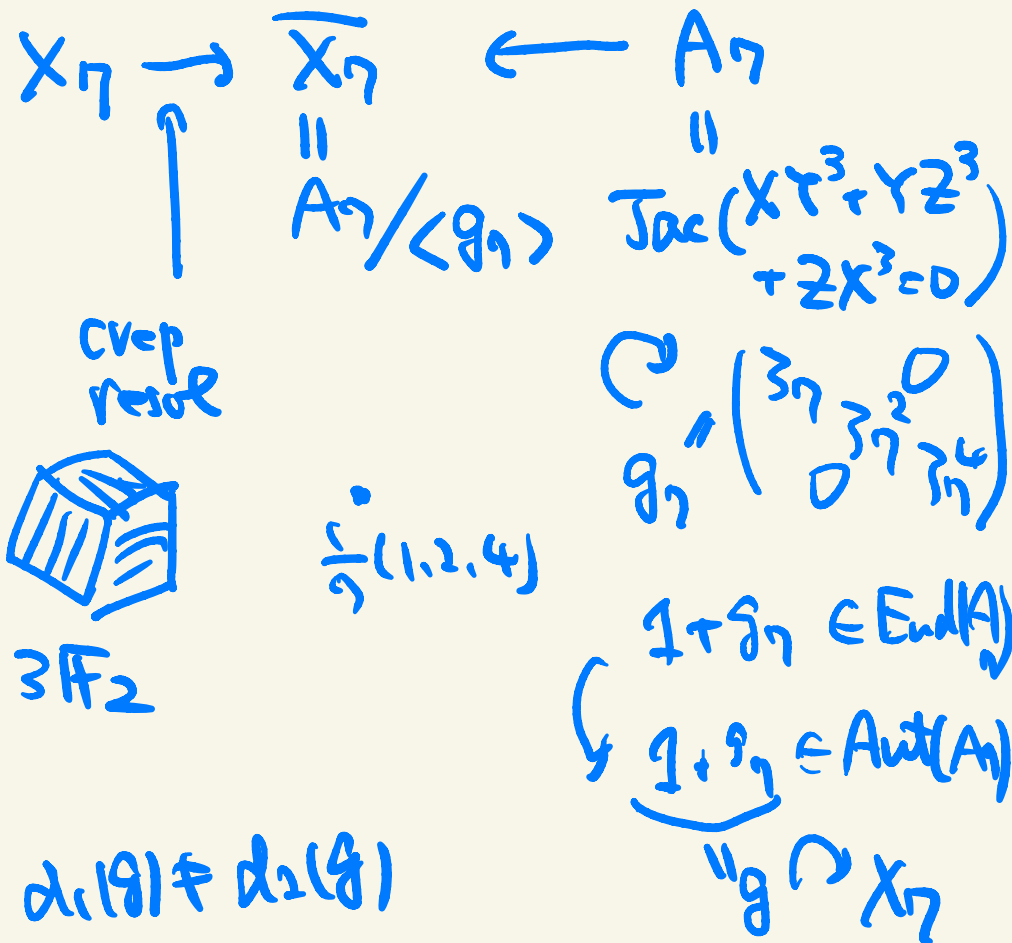 X₇ → X̅₇ ← A₇
|| ||
A₇/<g₇> Jac(XY³+YZ³
+ZX³=0)
crep
resol
g₇ = (ζ₇ 0
ζ₇²
0 ζ₇⁴)
1/7(1,2,4)
3𝔽₂
1+g₇ ∈ End(A₇)
1+g₇ ∈ Aut(A₇)
d₁(g) ≠ d₂(g)
"g ↷ X₇